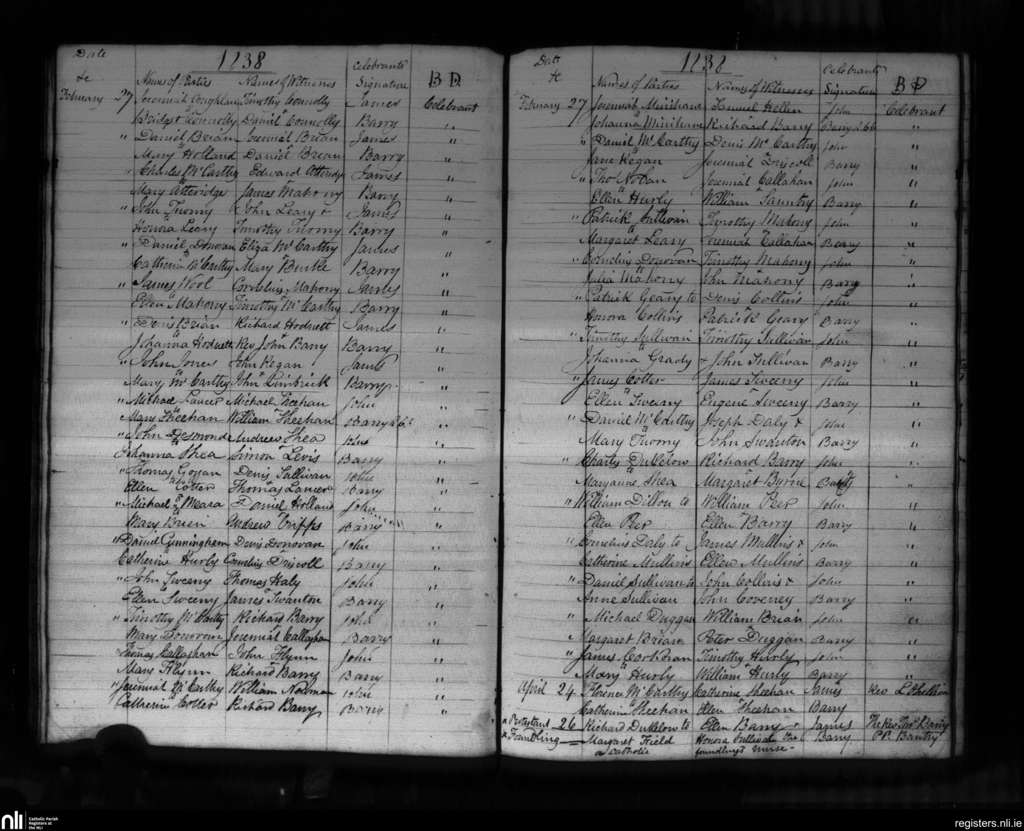 Date
&c
1838
Names of Parties Names of Witnesses
Celebrants
Signature
B D
February 27 Jeremiah Coughlan Timothy Connolly James Celebrant
Bridget Connolly Daniel Connolly Barry "
" Daniel Brian Jeremiah Brian James "
Mary Holland Daniel Brean Barry "
" Charles McCarthy Edward Atteridge James "
Mary Atteridge James Mahony Barry "
" John Twomy John Leary & James "
Honora Leary Timothy Twomy Barry "
" Daniel Donovan Eliza McCarthy James "
Catherine McCarthy Mary Burke Barry "
" James Noel Cornelius Mahony James "
Ellen Mahony Timothy McCarthy Barry "
" Denis Brian Richard Hodnett James "
Johanna Hodnett Rev John Barry Barry "
" John Jones John Regan James "
Mary McCarthy John Limbrick Barry "
" Michael Lancer Michael Sheehan John "
Mary Sheehan William Sheehan Barry "
" John Desmond Andrew Shea John "
Johanna Shea Simon Levis Barry "
" Thomas Gogan Denis Sullivan John "
Ellen Cotter Thomas Lancer Barry "
" Michael Meara Daniel Holland John "
Mary Brien Andrew Tripps Barry "
" Daniel Cunningham Denis Donovan John "
Catherine Hurly Cornelius Driscoll Barry "
" John Sweeny Thomas Haly John "
Ellen Sweeny James Swanton Barry "
" Timothy McCarthy Richard Barry John "
Mary Donovan Jeremiah Callaghan Barry "
Thomas Callaghan John Flynn John "
Mary Flynn Richard Barry Barry "
" Jeremiah McCarthy William Norman John "
Catherine Cotter Richard Barry Barry "
Date
&c
1838
Names of Parties Names of Witnesses
Celebrants
Signature
B D
February 27 Jeremiah Minihane Samuel Hellen John Celebrant
Johanna Minihane Richard Barry Barry "
" Daniel McCarthy Denis McCarthy John "
Jane Regan Jeremiah Driscoll Barry "
" Thos Nolan Jeremiah Callahan John "
Ellen Hurly William Sauntry Barry "
" Patrick Sullivan Timothy Mahony John "
Margaret Leary Jeremiah Callahan Barry "
" Cornelius Donovan Timothy Mahony John "
Julia Mahony John Mahony Barry "
" Patrick Geary to Denis Collins John "
Honora Collins Patrick Geary Barry "
" Timothy Sullivan Timothy Sullivan John "
Johanna Grady & John Sullivan Barry "
" James Cotter James Sweeny John "
Ellen Sweany Eugene Sweeny Barry "
" Daniel McCarthy Joseph Daly & John "
Mary Twomy John Swanton Barry "
" Charles Richard Barry John "
Maryanne Shea Margaret Byrne Barry "
" William Dillon to William Peer John "
Ellen Peer Ellen Barry Barry "
" Cornelius Daly to James Mullins & John "
Catherine Mullins Ellen Mullins Barry "
" Daniel Sullivan to John Collins & John "
Anne Sullivan John Coveney Barry "
" Michael Duggan William Brian John "
" Margaret Brian Peter Duggan Barry "
" James Corkoran Timothy Hurly John "
" Mary Hurly William Hurly Barry "
April 24 Florence McCarthy Catherine Sheehan James Rev
Catherine Sheehan Ellen Sheehan Barry
a Protestant 26 Richard to Ellen Barry & James The Rev Thos Barry
a Foundling Margaret Field Honora Sullivan the Barry P.P. Bantry
a Catholic foundling's nurse
nli Catholic Parish
Registers at
the NLI
registers.nli.ie